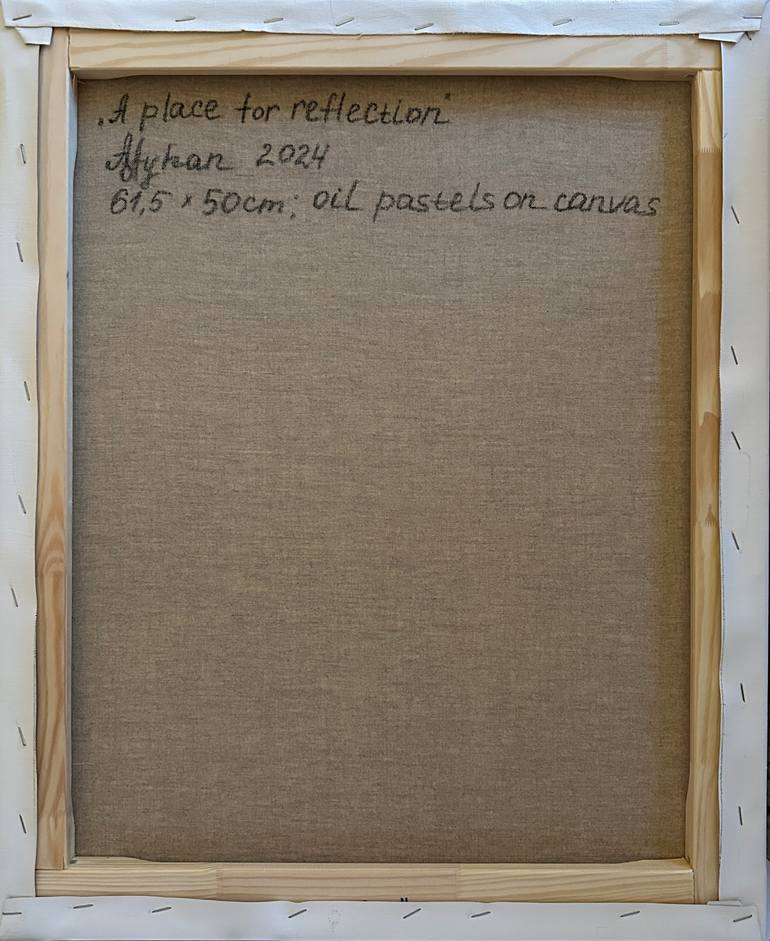 „A place for reflection"
Afghan 2024
61,5 × 50cm; oil pastels on canvas